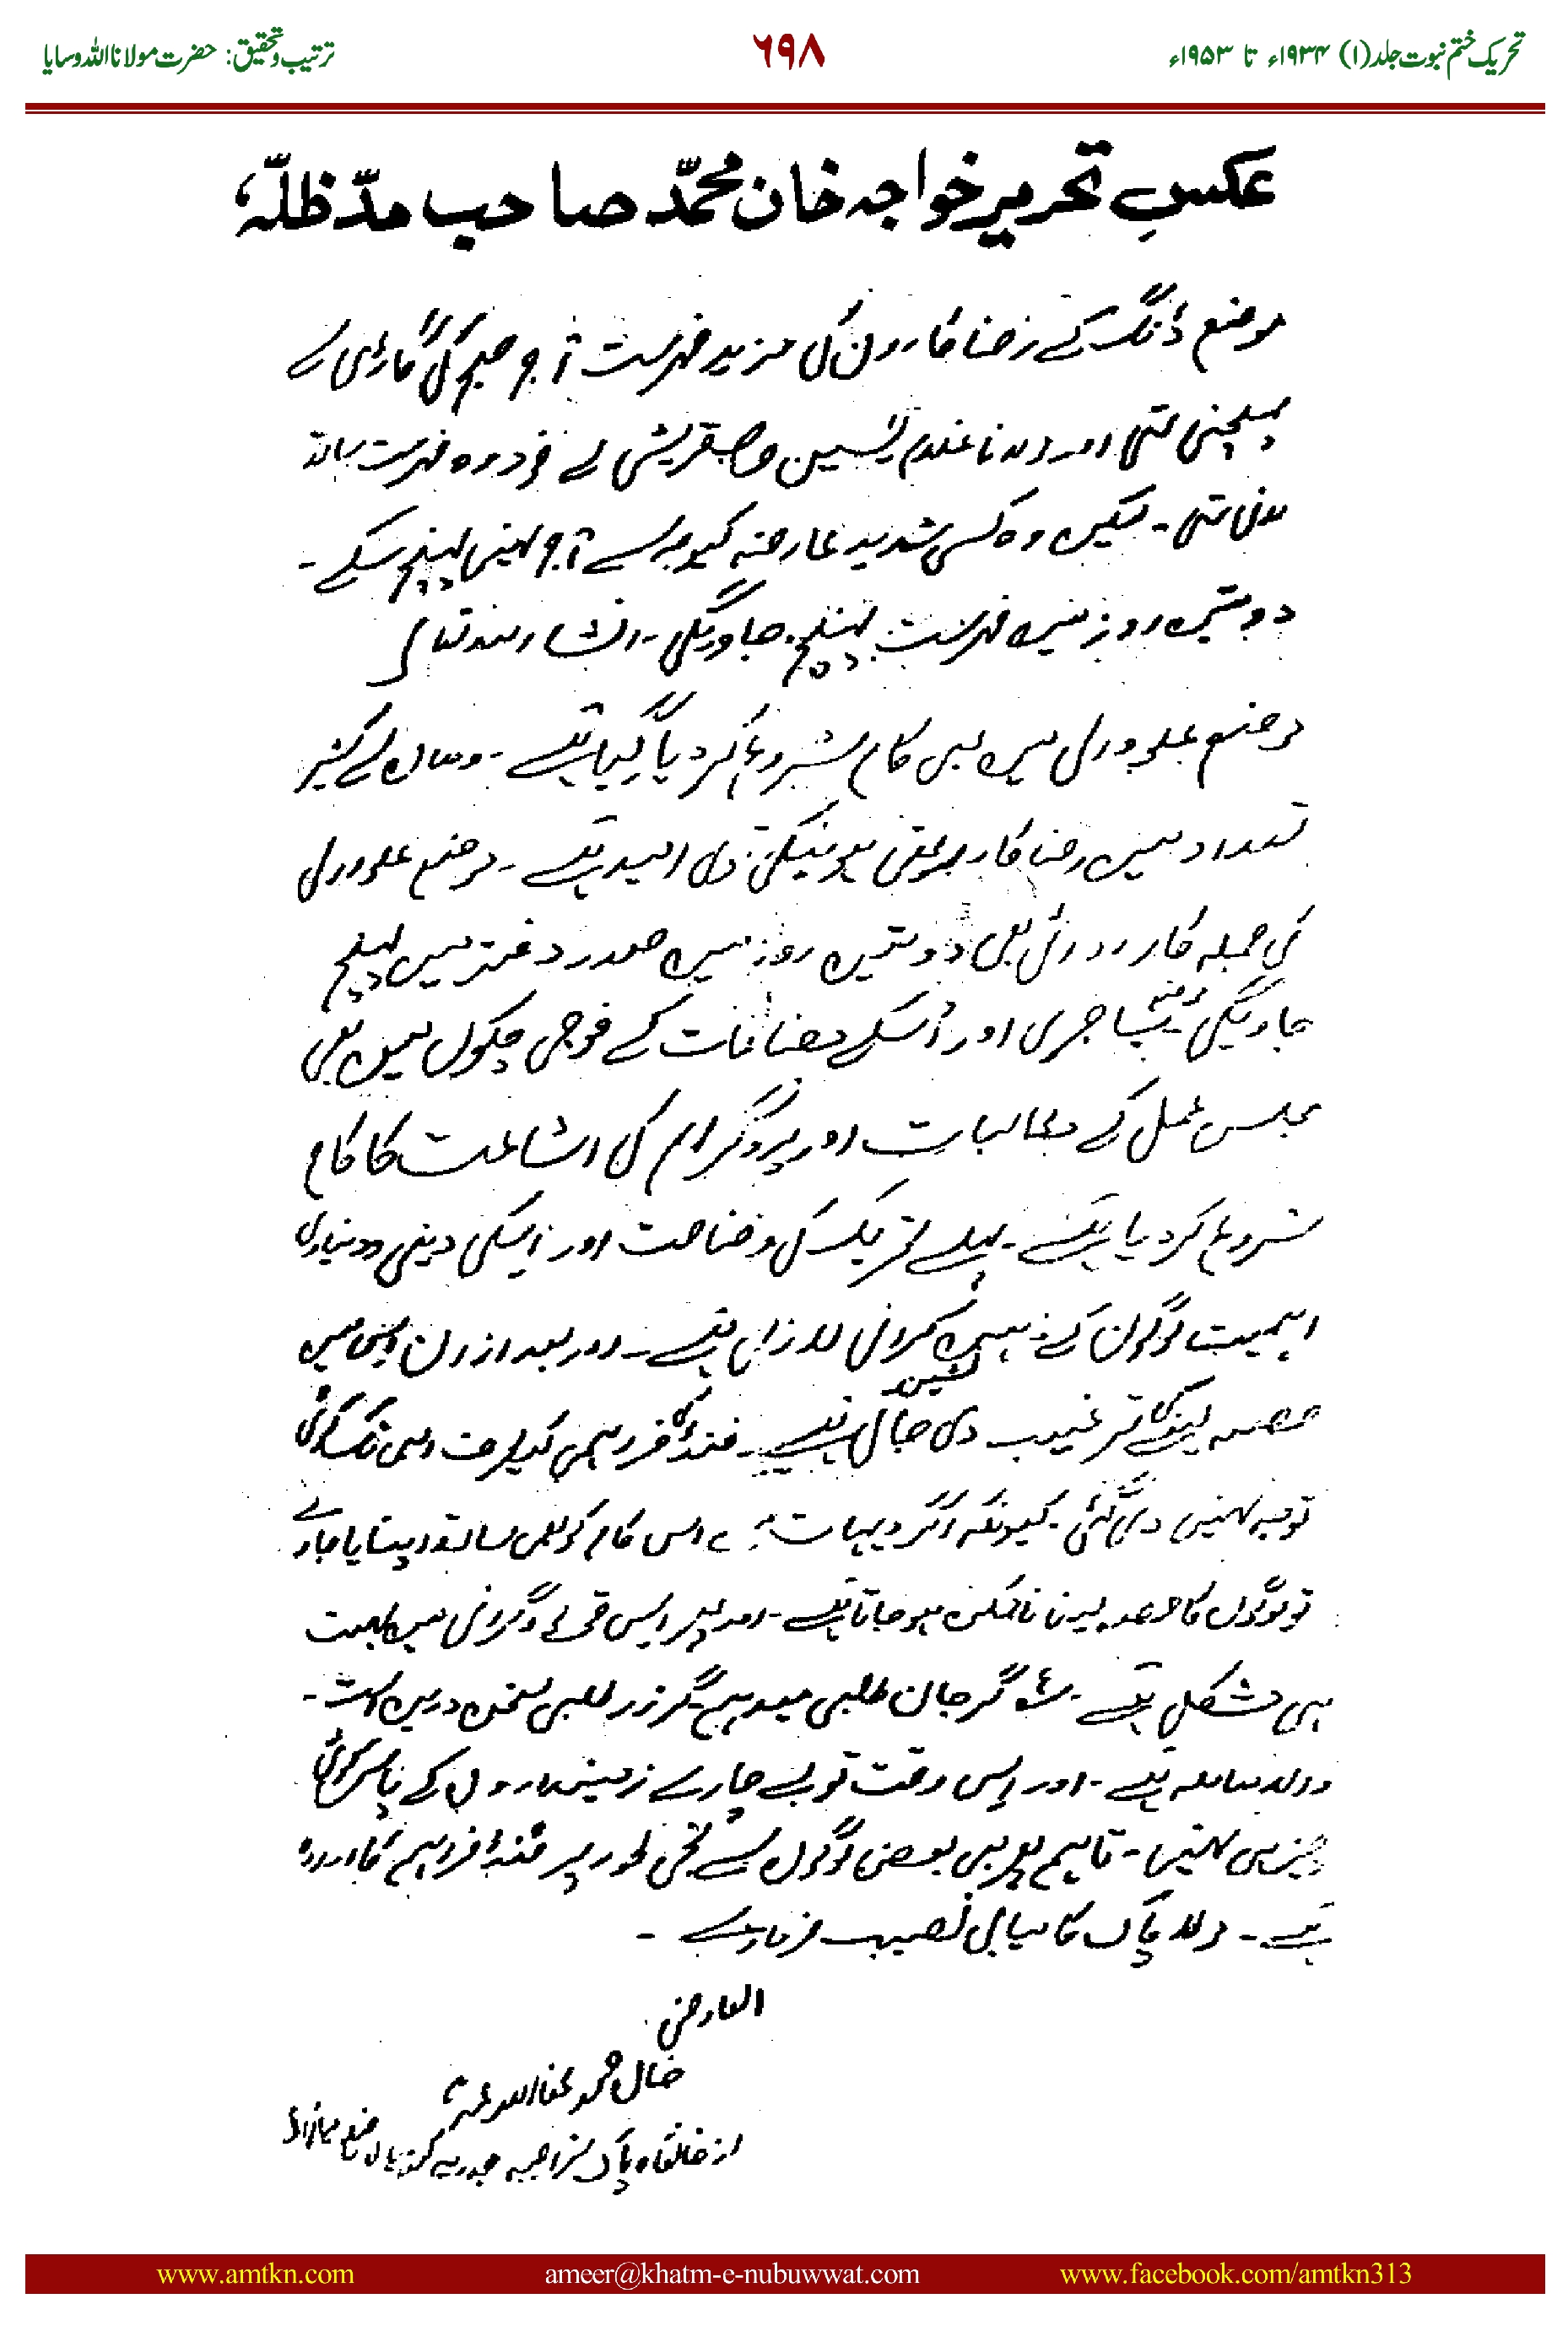 تحریک ختم نبوت جلد (۱) ۱۹۳۴ء تا ۱۹۵۳ء
۶۹۸
ترتیب و تحقیق: حضرت مولانا اللہ وسایا
عکسِ تحریر خواجہ خان محمّد صاحب مدّظلّہٗ
موضع ڈنگ کے رضاکاروں کی مزید فہرست آج صبح کی گاڑی سے
پہنچنی تھی اور مولانا غلام یٰسین صاحب قریشی نے خود وہ فہرست ساتھ
لانی تھی - لیکن وہ کسی شدید عارضہ کیوجہ سے آج نہیں پہنچ سکے -
دو تین روز میں فہرست پہنچ جاویگی - انشاء اللہ تعالیٰ
موضع علووالی میں بھی کام شروع کر دیا گیا ہے - وہاں سے کثیر
تعداد میں رضاکار بھرتی ہونیکی امید ہے - موضع علووالی
کی جملہ کارروائی بھی دو تین روز میں صدر دفتر میں پہنچ
جاویگی اور اُسکے مضافات کے فوجی چکوں میں بھی
مجلس عمل کے مطالبات اور پروگرام کی اشاعت کا کام
شروع کر دیا ہے - پہلے تحریک کی وضاحت اور اسکی دینی و دنیاوی
اہمیت لوگوں کے ذہن نشین کرانی لازمی ہے - اور بعد ازاں اس میں
حصہ لینے کی ترغیب دی جاتی ہے - فنڈ کی فراہمی کیطرف ابھی تک کوئی
توجہ نہیں دی گئی - کیونکہ اگر دیہات میں اس کام کو بھی ساتھ اپنایا جاوے
تو لوگوں کا حصہ لینا ناممکن ہو جاتا ہے - اور پھر اس قحط و گرانی میں بہت
ہی مشکل ہے - گر جان طلبی میدہم گر زر طلبی سخن دریں است -
والا معاملہ ہے - اور اس وقت تو بے چارے زمینداروں کے پاس کوئی
چیز ہی نہیں - تاہم پھر بھی بعض لوگوں سے نجی طور پر فنڈ فراہم کا ارادہ
ہے - مولا پاک کامیابی نصیب فرماوے -
العارض
خان محمد عفا اللہ عنہ
از خانقاہ پاک سراجیہ مجددیہ کندیاں ضلع میانوالی
www.amtkn.com
ameer@khatm-e-nubuwwat.com
www.facebook.com/amtkn313